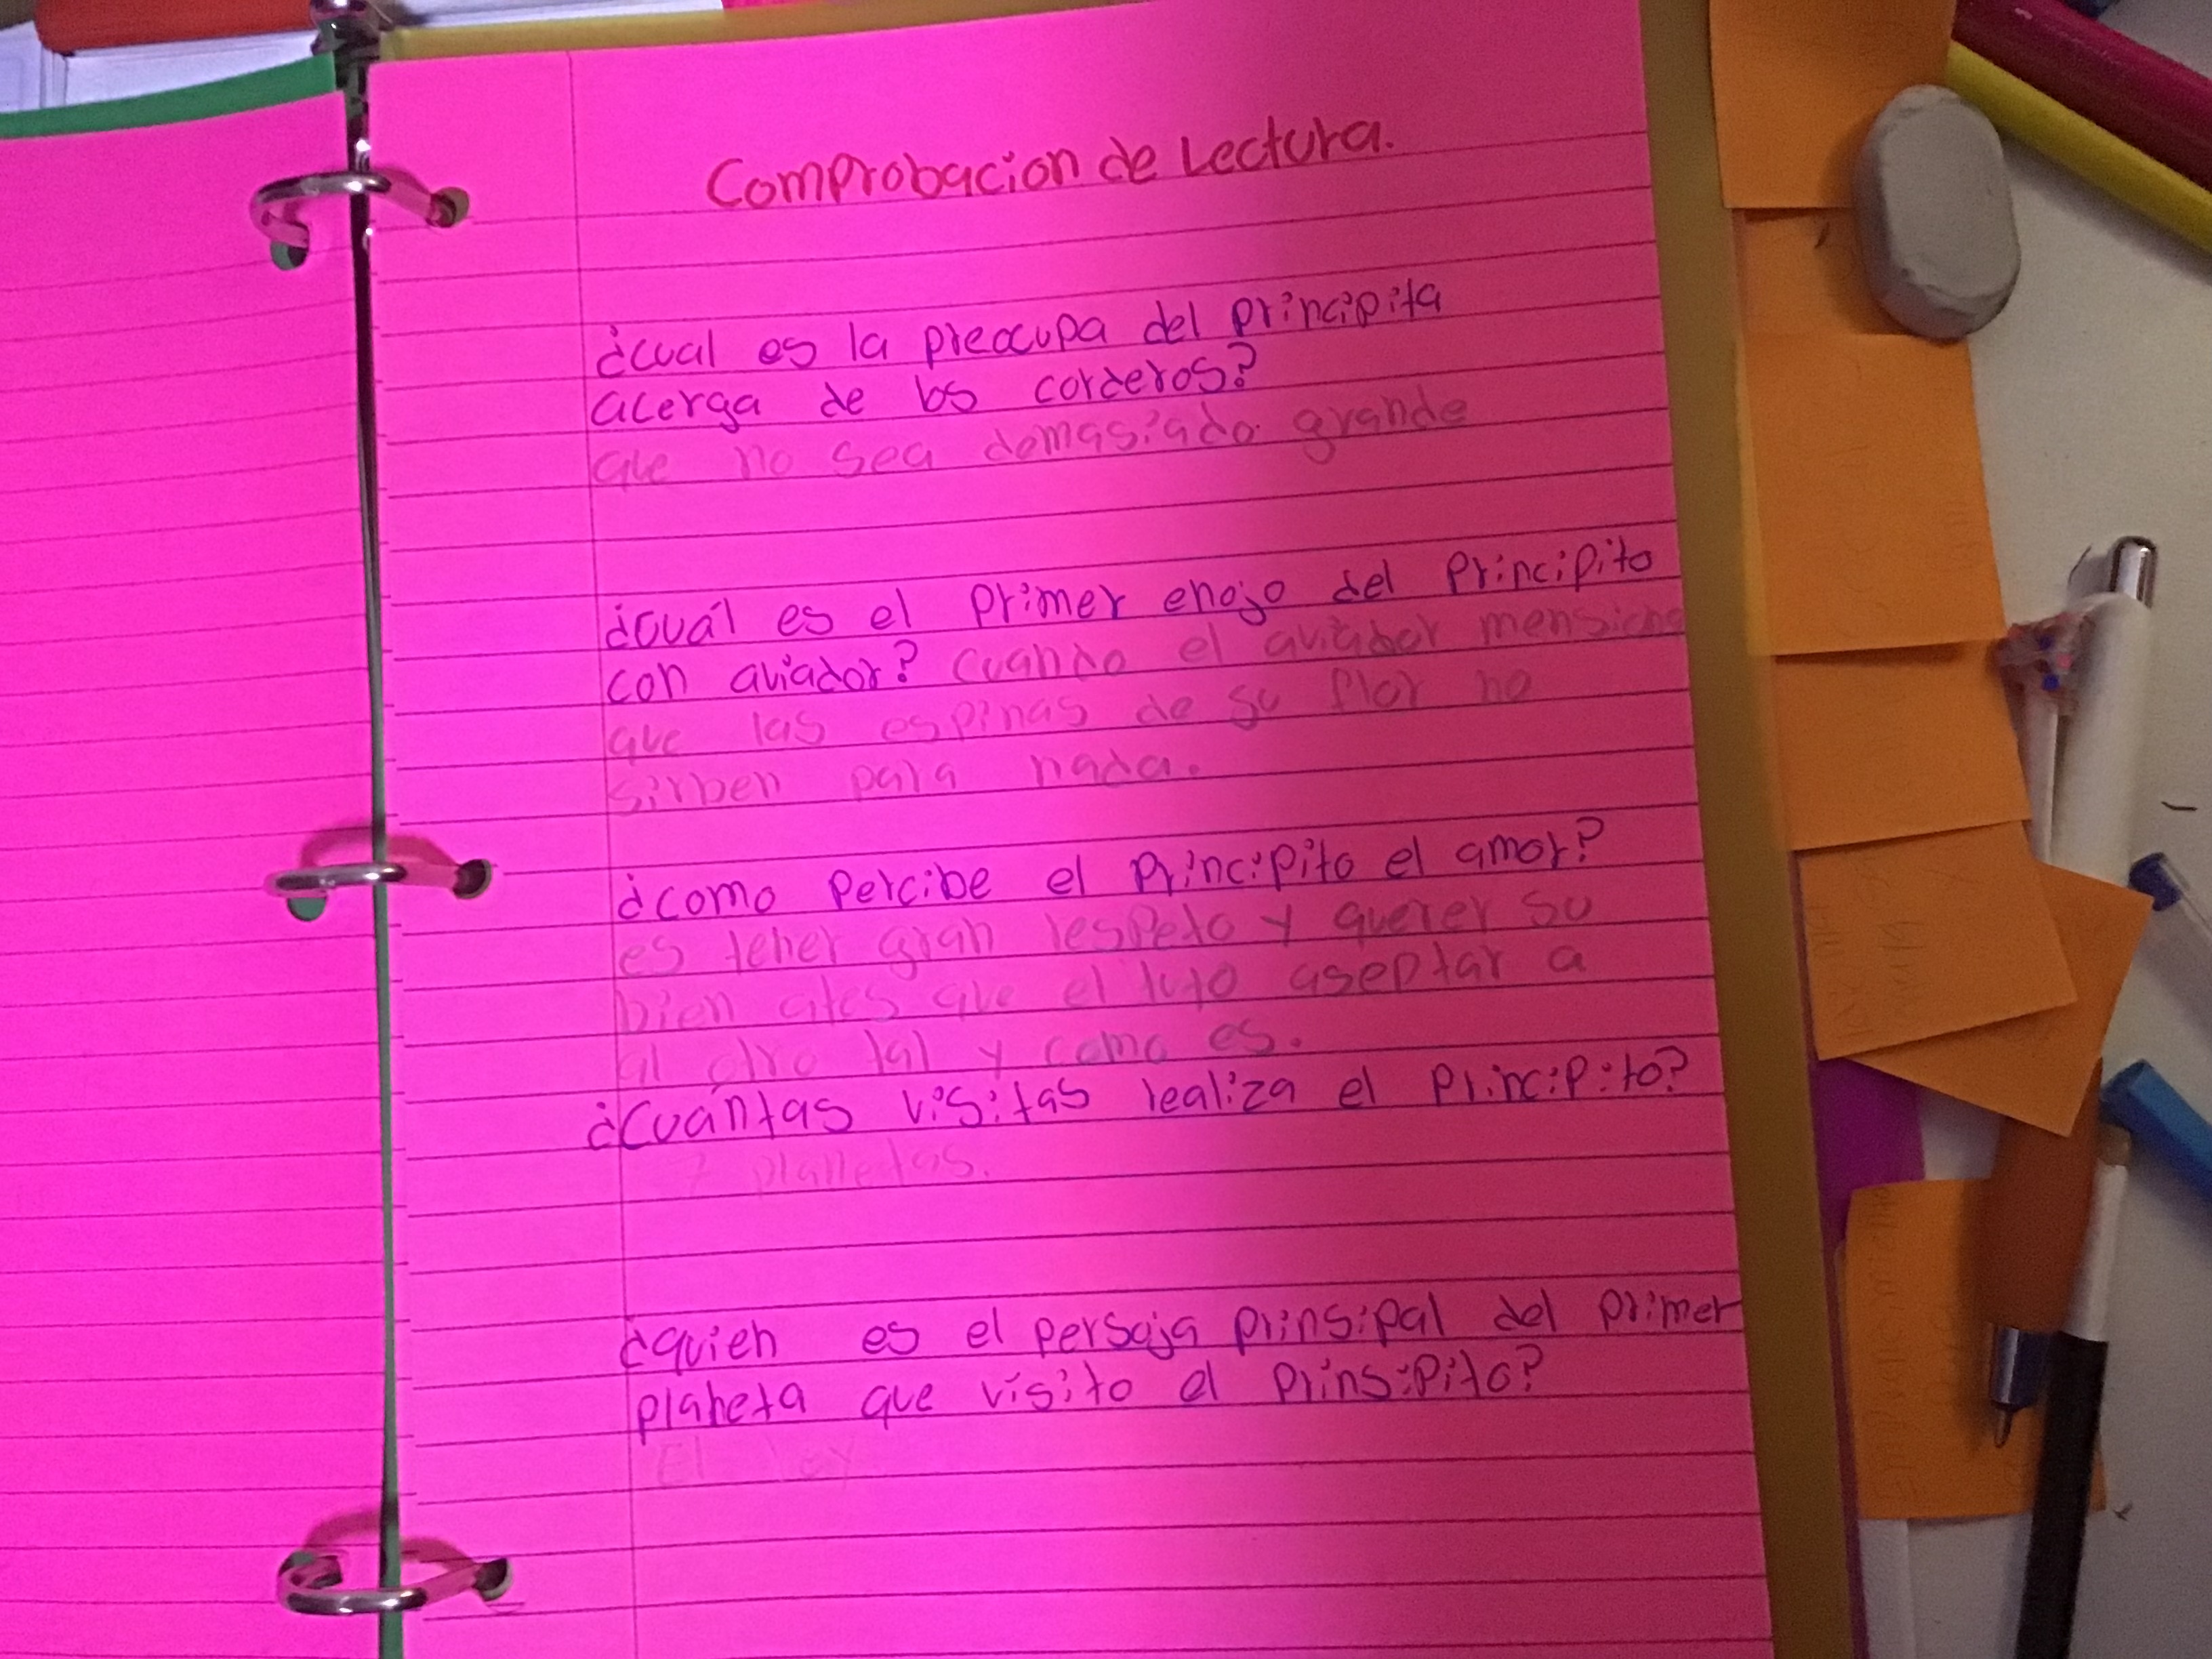 Comprobacion de Lectura.
¿cual es la preocupa del principita
acerga de los corderos?
que no sea demasiado grande
¿cuál es el primer enojo del principito
con aviador? Cuando el aviador mensiona
que las espinas de su flor no
sirben para nada.
¿como percibe el principito el amor?
es tener gran respeto y querer su
bien ates que el tuyo aseptar a
al otro tal y como es.
¿Cuántas visitas realiza el principito?
7 planetas.
¿quien es el persaja prinsipal del primer
planeta que visito el prinsipito?
El rey